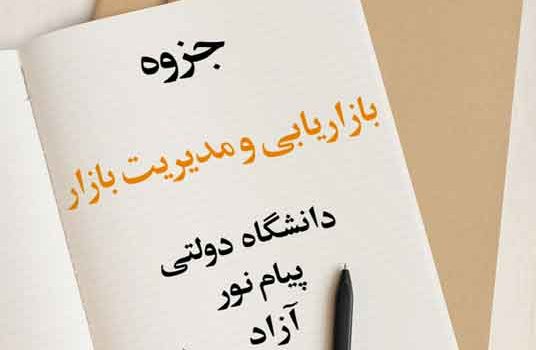 جزوه
بازاریابی و مدیریت بازار
دانشگاه دولتی
پیام نور
آزاد